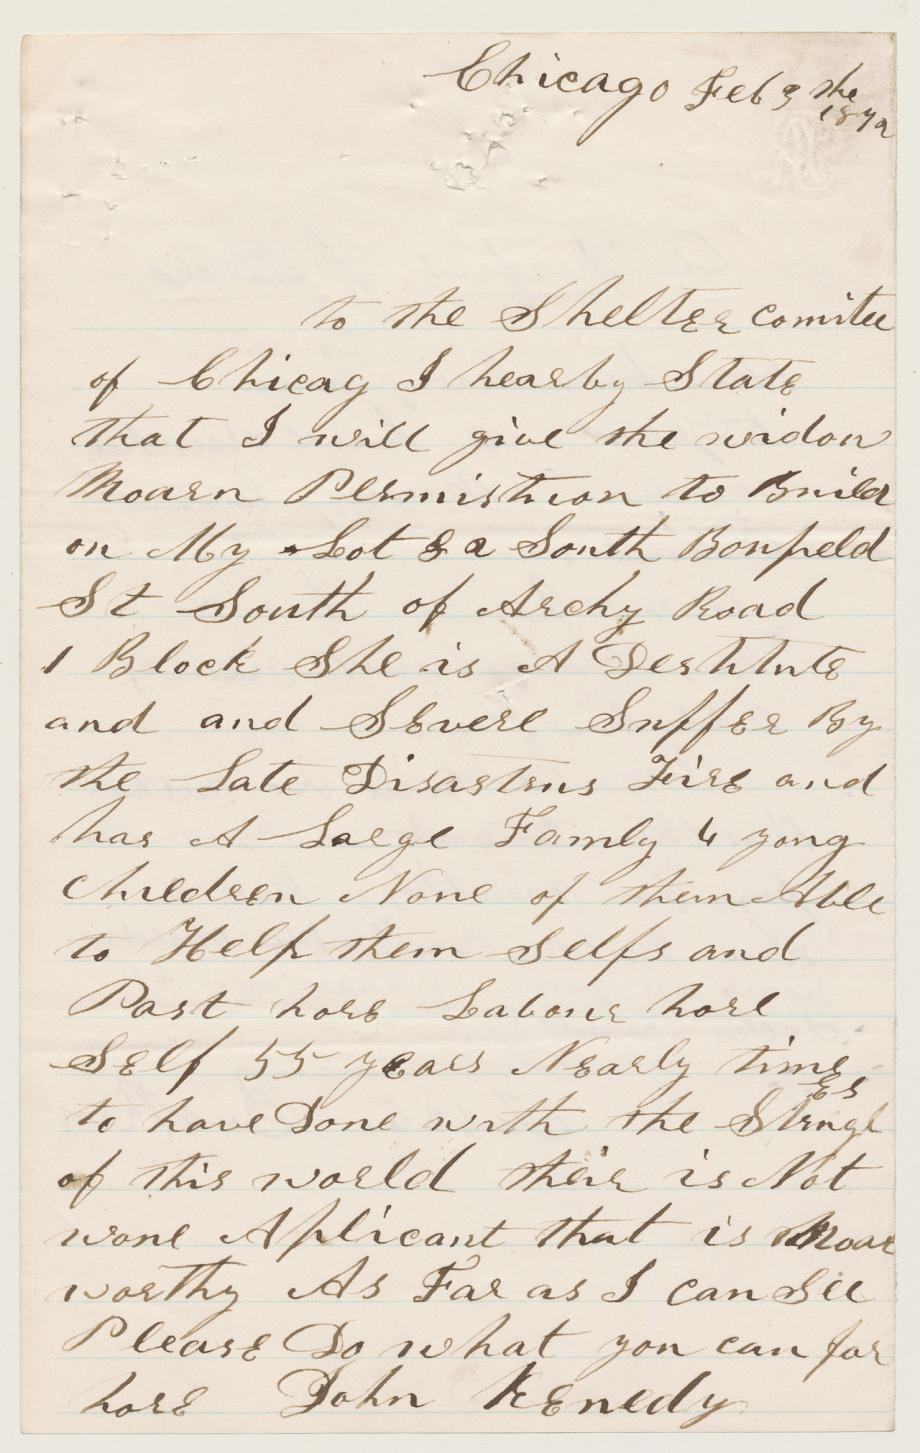 Chicago Feb 3 the
1872
to the Shelter comitee
of Chicag I hearby State
that I will give the widow
Moarn Permistion to Build
on My Lot South Bonfield
St South of Archy Road
1 Block She is A Destitute
and and Severe Suffer By
the Late Disastrus Fire and
has A Large Famly 4 yong
Children None of them Able
to Help them Selfs and
Past hore Labour hore
Self 55 years Nearly time
to have Done with the Strugles
of this world their is Not
wone Aplicant that is Moar
worthy As Far as I can See
Please Do what you can for
hore John Kenedy